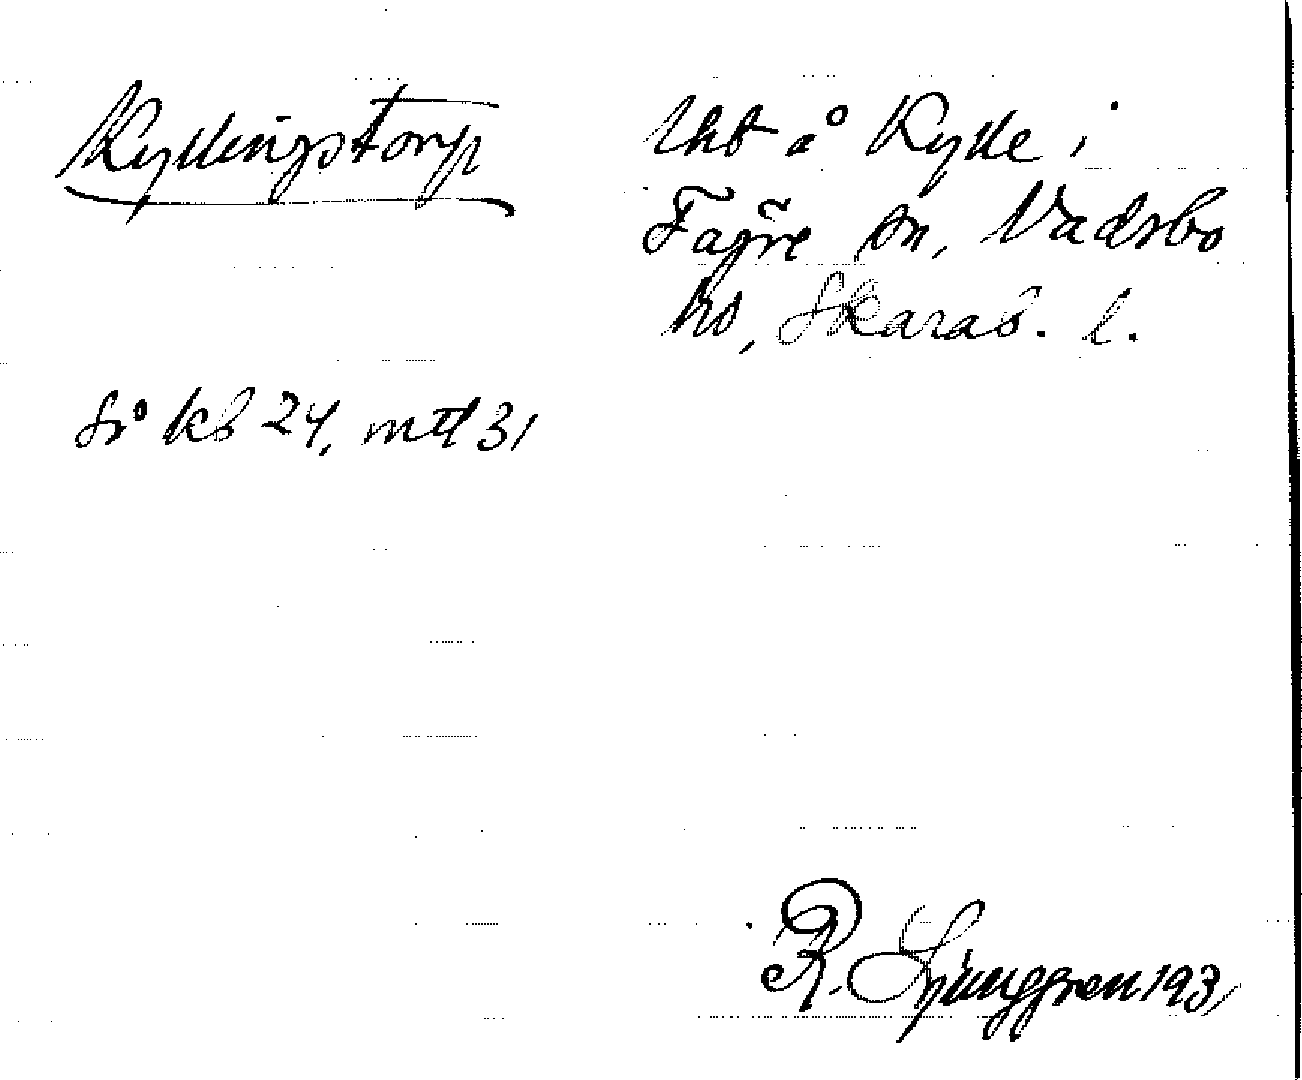 Kyllingstorp
Uht å Kylle i
Fägre sn, Vadsbo
hd, Skarab. l.
Så kb 24, mtl 31
R. Ljunggren 1931